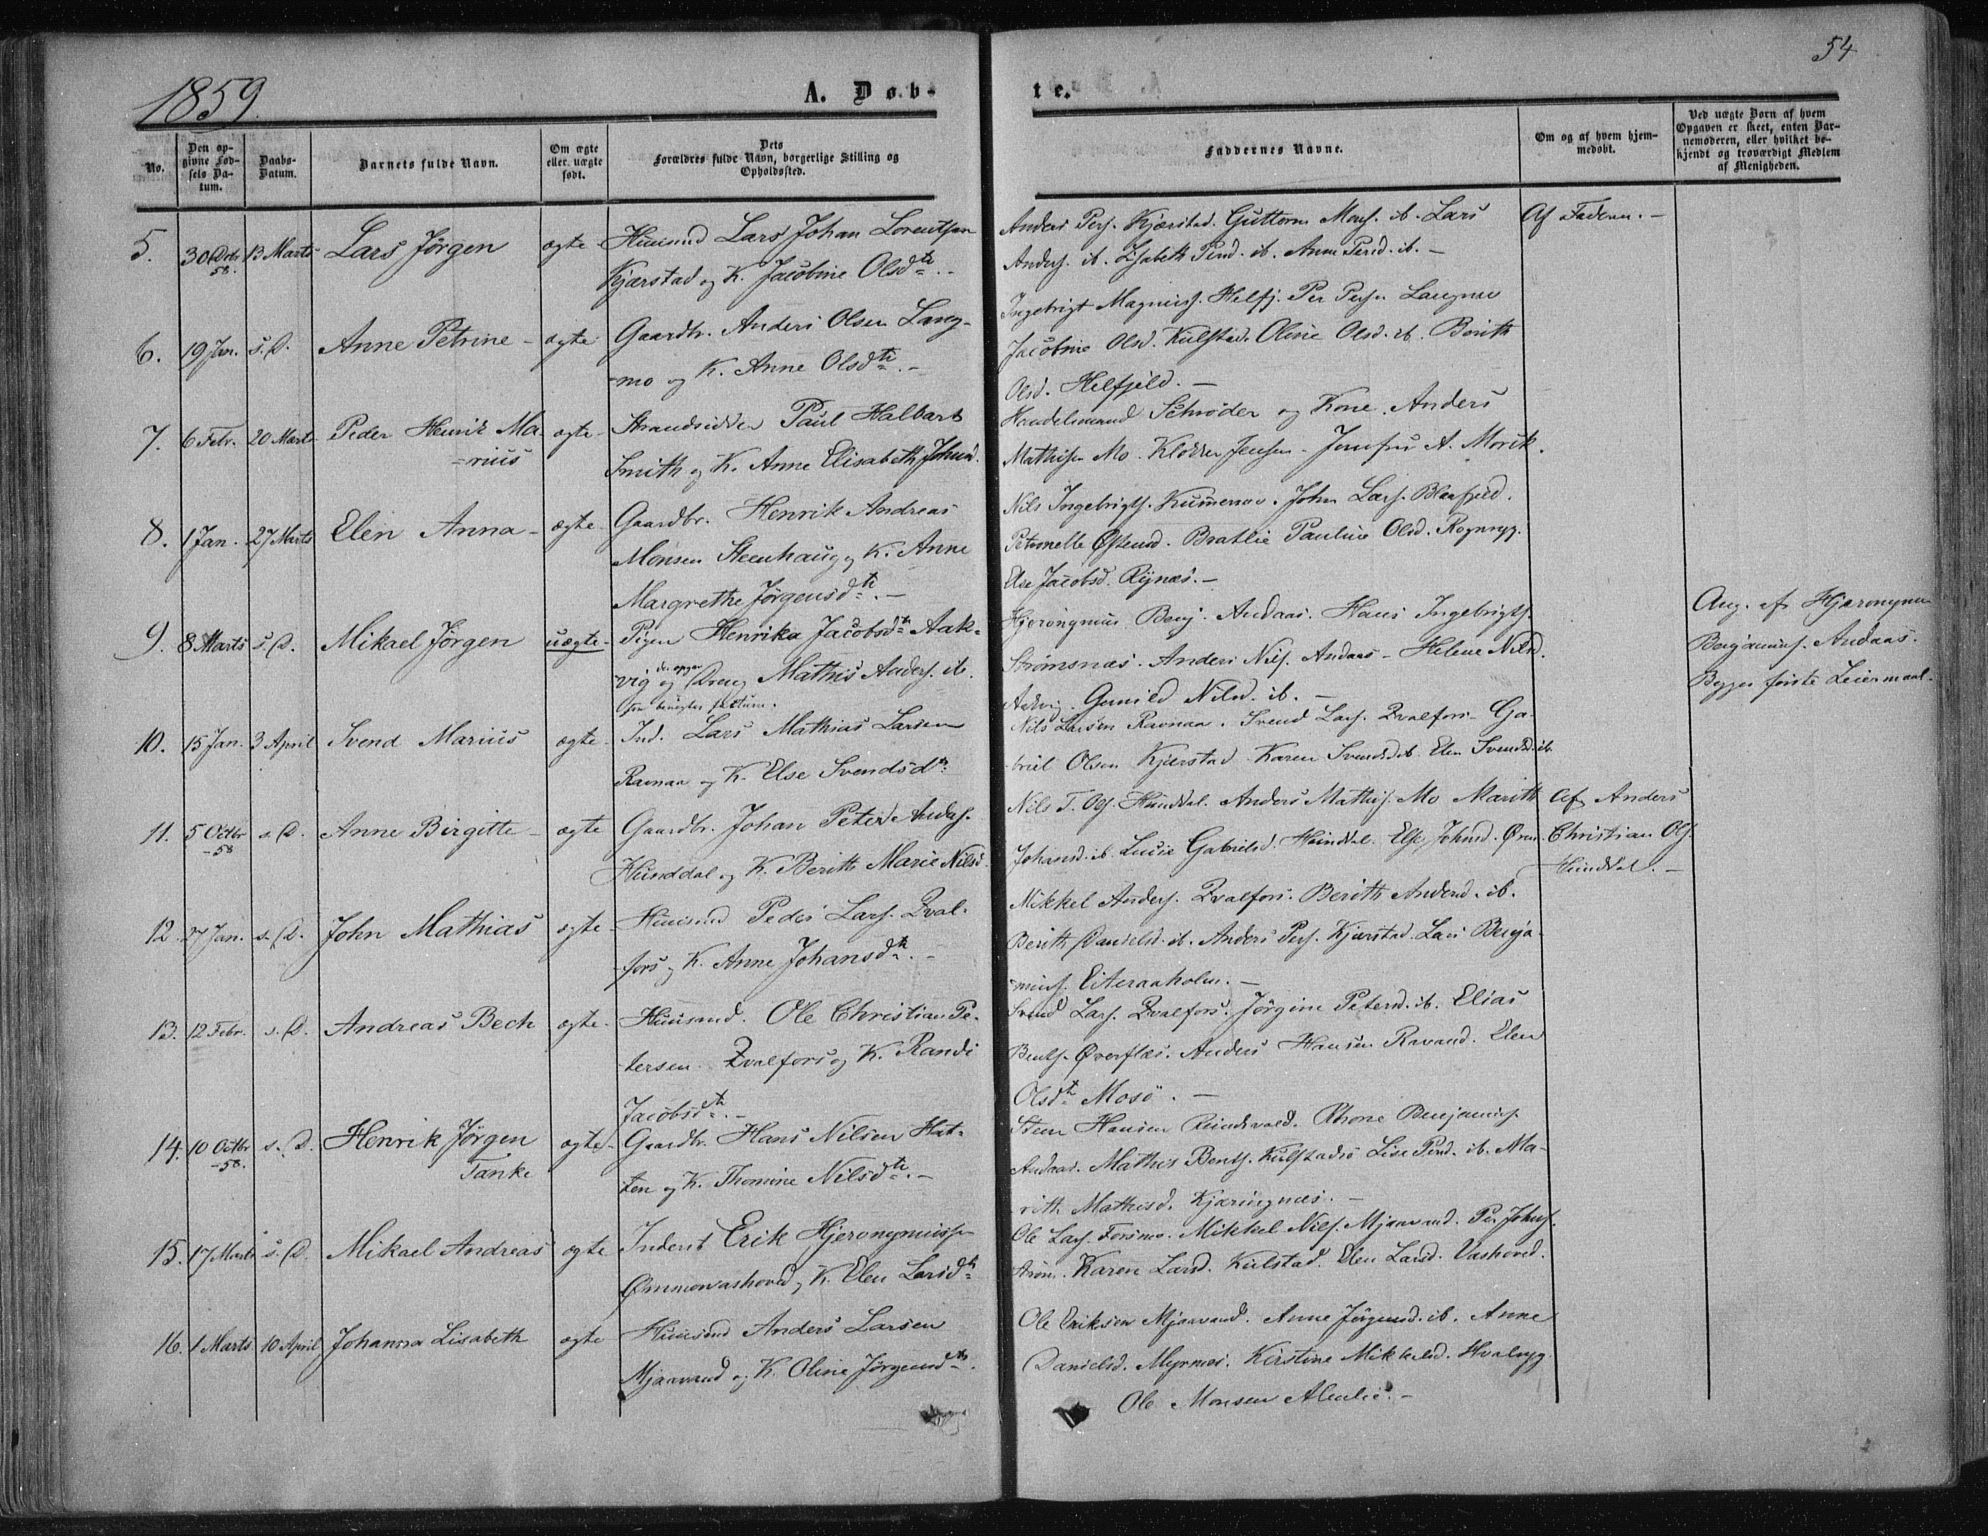 54
1859.
A. Døb-
te.
No.
Den op-
givne Fød-
sels Da-
tum.
Daabs-
Datum.
Barnets fulde Navn.
Om ægte
eller uægte
født.
Dets
Forældres fulde Navn, borgerlige Stilling og
Opholdssted.
Faddernes Navne.
Om og af hvem hjem-
medøbt.
Ved uægte Børn af hvem
Opgaven er skeet, enten Bar-
nemoderen, eller hvilket be-
kjendt og troværdigt Medlem
af Menigheden.
5. 30 Decbr 58. 13 Marts Lars Jørgen ægte Huusmd Lars Johan Lorentsen
Kjærstad og K. Jacobine Olsdtr. -
Anders Pers. Kjærstad. Guttorm Mons. ib. Lars
Anders. ib. Lisabeth Persd. ib. Anne Persd. ib. -
Af Faderen. -
6. 19 Jan. s. D. Anne Petrine - ægte Gaardbr. Anders Olsen Lang-
mo og K. Anne Olsdtr. -
Ingebrigt Magnus. Helfj. Per Pers.
Jacobine Olsd. Kulstad. Oline Olsd. ib. Berith
Olsd. Helfjeld. -
7. 6 Febr. 20 Marts Peder Henrik Ma-
=rius ægte Strandsidder Paul Halbart
Smith og K. Anne Elisabeth Johnsd.
Handelsmand Schrøder og Kone. Anders
Mathisen Mo. Klokker Jensen. Jomfru A. Morik.
8. 1 Jan. 27 Marts Elen Anna - ægte Gaardbr. Henrik Andreas
Monsen Steenhaug og K. Anne
Margrethe Jørgensdtr. -
Nils Ingebrigts. John Lars. Blaafjeld.
Petronelle Bratlie Pauline Olsd.
Else Jacobsd. Rynæs. -
9. 8 Marts s. D. Mikael Jørgen uægte Pigen Henrika Jacobsdtr Aak-
vig og Dreng Mathis Anders. ib.
Hjeronymus Benj. Andaas. Hans Ingebrigts.
Strømsnæs. Anders Nils. Andaas - Helene Nilsd.
Gunild Nilsd. ib. -
Ang. af Hjeronymus
Benjamins. Andaas.
Begges første Leiermaal.
10. 15 Jan. 3 April Svend Marius ægte Ind. Lars Mathias Larsen
Ravnaa og K. Else Svendsdtr.
Nils Larsen Ravnaa. Svend Lars. Kvalfors. Ga-
briel Olsen Kjærstad. Karen Svendsd. ib. Elen Svendsd. ib.
11. 5 Octbr -58 s. D. Anne Birgitte - ægte Gaardbr. Johan Peter Anders.
Hunddal og K. Berith Marie Nilsd.
Nils T. Ols. Hunddal. Anders Mathis. Mo Marith
Johansd. ib. Lucie Gabrielsd. Hunddal. Else Johnsd.
Af Anders
Christian Ols.
Hunddal. -
12. 27 Jan. s. D. John Mathias ægte Huusmd Peder Lars. Kval-
fors og K. Anne Johansdtr. -
Mikkel Anders. Kvalfors. Berith Andersd. ib.
Berith Danielsd. ib. Anders Pers. Kjærstad. Lars Benja-
mins. Eiteraaholm. -
13. 12 Febr. s. D. Andreas Bech ægte Huusmd. Ole Christian Pe-
tersen Kvalfors og K. Randi
Jacobsdtr. -
Svend Lars. Kvalfors. Jørgine Petersd. ib. Elias
Bents. Øverflæs. Anders Hansen Ravand. Elen
Olsdtr Mosø. -
14. 10 Octbr -58. s. D. Henrik Jørgen
Tanke ægte Gaardbr. Hans Nilsen Hat-
ten og K. Thomine Nilsdtr. -
Steen Hansen Benjamins.
Andaas. Mathis Bents. Kulstadsø Lise Persd. ib. Ma-
rith Mathisd. Kjæringnæs. -
15. 17 Marts s. D. Mikael Andreas ægte Inderst Erik Hjeronymussen
Ømmervashoved og K. Elen Larsdtr.
Ole Lars. Forsmo. Mikkel Nils. Mjaavand. Per Johns.
Strøm. Karen Larsd. Kulstad. Elen Larsd. Vashoved.
16. 1 Marts 10 April Johanna Lisabeth ægte Huusmd Anders Larsen
Mjaavand og K. Oline Jørgensdtr.
Ole Eriksen Mjaavand. Anne Jørgensd. ib. Anne
Danielsd. Myrnæs. Kirstine Mikkelsd. Hvalryg.
Ole Monsen Almlie. -